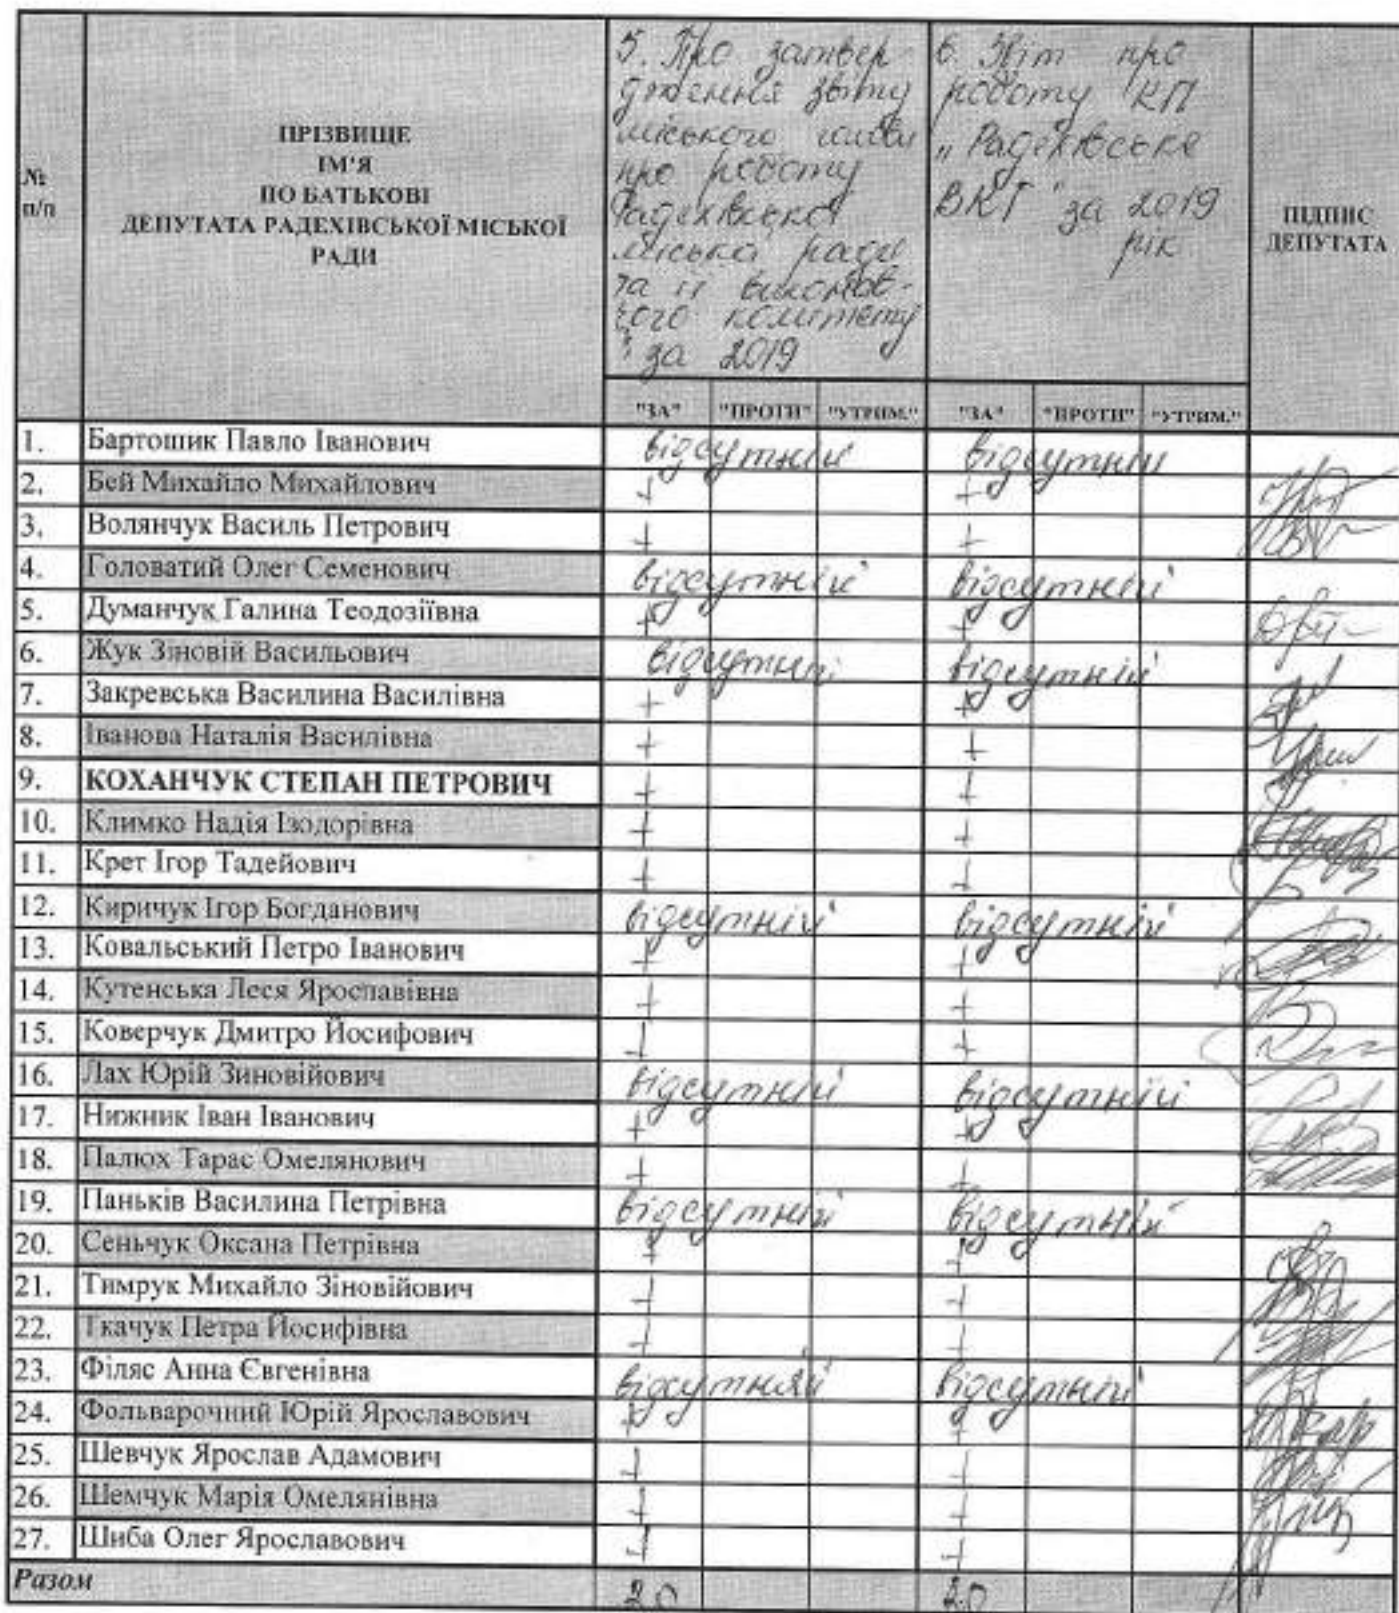 №
п/п
ПРІЗВИЩЕ
ІМ'Я
ПО БАТЬКОВІ
ДЕПУТАТА РАДЕХІВСЬКОЇ МІСЬКОЇ
РАДИ
5. Про затвер-
дження звіту
міського голови
про роботу
Радехівської
міської ради
та її виконав-
чого комітету
за 2019
6. Звіт про
роботу КП
„Радехівське
ВКГ" за 2019
рік
ПІДПИС
ДЕПУТАТА
"ЗА" "ПРОТИ" "УТРИМ." "ЗА" "ПРОТИ" "УТРИМ."
1. Бартошик Павло Іванович відсутній відсутній
2. Бей Михайло Михайлович + +
3. Волянчук Василь Петрович + +
4. Головатий Олег Семенович відсутній відсутній
5. Думанчук Галина Теодозіївна + +
6. Жук Зіновій Васильович відсутній відсутній
7. Закревська Василина Василівна + +
8. Іванова Наталія Василівна + +
9. КОХАНЧУК СТЕПАН ПЕТРОВИЧ + +
10. Климко Надія Ізодорівна + +
11. Крет Ігор Тадейович + +
12. Киричук Ігор Богданович відсутній відсутній
13. Ковальський Петро Іванович + +
14. Кутенська Леся Ярославівна + +
15. Коверчук Дмитро Йосифович + +
16. Лах Юрій Зиновійович відсутній відсутній
17. Нижник Іван Іванович + +
18. Палюх Тарас Омелянович + +
19. Паньків Василина Петрівна відсутній відсутній
20. Сеньчук Оксана Петрівна + +
21. Тимрук Михайло Зіновійович + +
22. Ткачук Петра Йосифівна + +
23. Філяс Анна Євгенівна відсутній відсутній
24. Фольварочний Юрій Ярославович + +
25. Шевчук Ярослав Адамович + +
26. Шемчук Марія Омелянівна + +
27. Шиба Олег Ярославович + +
Разом 20 20